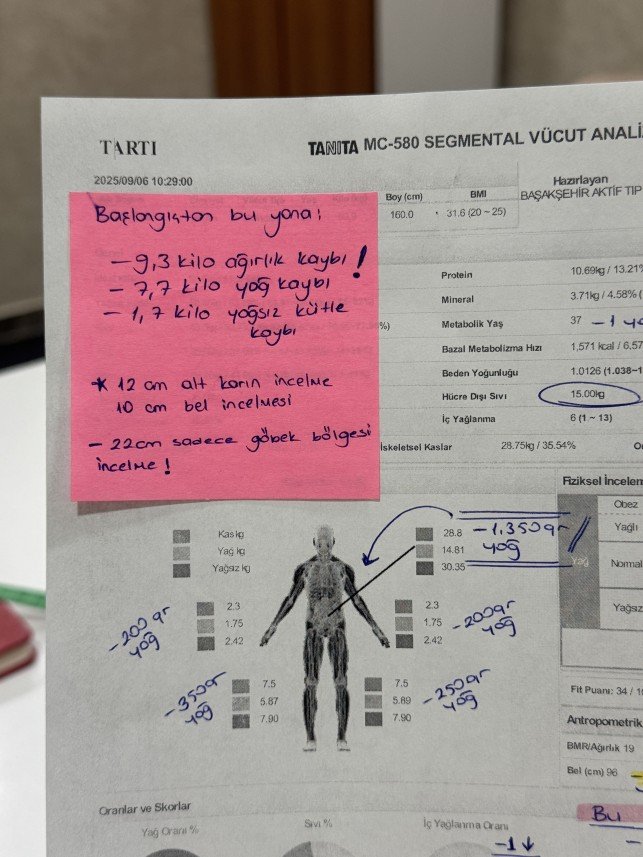 TARTI
TANITA MC-580 SEGMENTAL VÜCUT ANALİ
2025/09/06 10:29:00
Hazırlayan
BAŞAKŞEHİR AKTİF TIP
Boy (cm)
BMI
160.0
31.6 (20 ~ 25)
Başlangıçtan bu yana;
- 9,3 kilo ağırlık kaybı!
- 7,7 kilo yağ kaybı
- 1,7 kilo yağsız kütle
kaybı
* 12 cm alt karın incelme
10 cm bel incelmesi
- 22cm sadece göbek bölgesi
incelme!
Protein 10.69kg / 13.21%
Mineral 3.71kg / 4.58% (
%)
Metabolik Yaş 37 -1
Bazal Metabolizma Hızı 1,571 kcal / 6,57
Beden Yoğunluğu 1.0126 (1.038~1
Hücre Dışı Sıvı 15.00kg
İç Yağlanma 6 (1 ~ 13)
İskeletsel Kaslar 28.75kg / 35.54%
Fiziksel İncelem
Obez
Yağlı
Yağ
Normal
Yağsız
Kas kg
Yağ kg
Yağsız kg
28.8
14.81
30.35
-1,350gr
yağ
2.3
1.75
2.42
-200gr
yağ
2.3
1.75
2.42
-200gr
yağ
7.5
5.87
7.90
-350gr
yağ
7.5
5.89
7.90
-250gr
yağ
Fit Puanı: 34 / 1
Antropometrik
BMR/Ağırlık 19
Bel (cm) 96
Bu
Oranlar ve Skorlar
Yağ Oranı %
Sıvı %
İç Yağlanma Oranı
-1↓